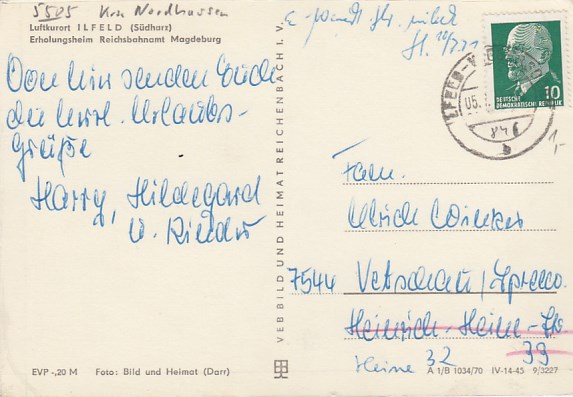 5505 Krs Nordhausen
Luftkurort ILFELD (Südharz)
Erholungsheim Reichsbahnamt Magdeburg
Von hier senden Euch
die herzl. Urlaubs-
grüße
Harry, Hildegard
u. Kinder
EVP -,20 M Foto: Bild und Heimat (Darr)
VEB BILD UND HEIMAT REICHENBACH I. V.
DEUTSCHE
DEMOKRATISCHE REPUBLIK
10
05.
1,-
Fam.
Ulrich
7544 Vetschau/Spreew.
Heinrich-Heine-Str
39
Heine 32
A 1/B 1034/70 IV-14-45 9/3227